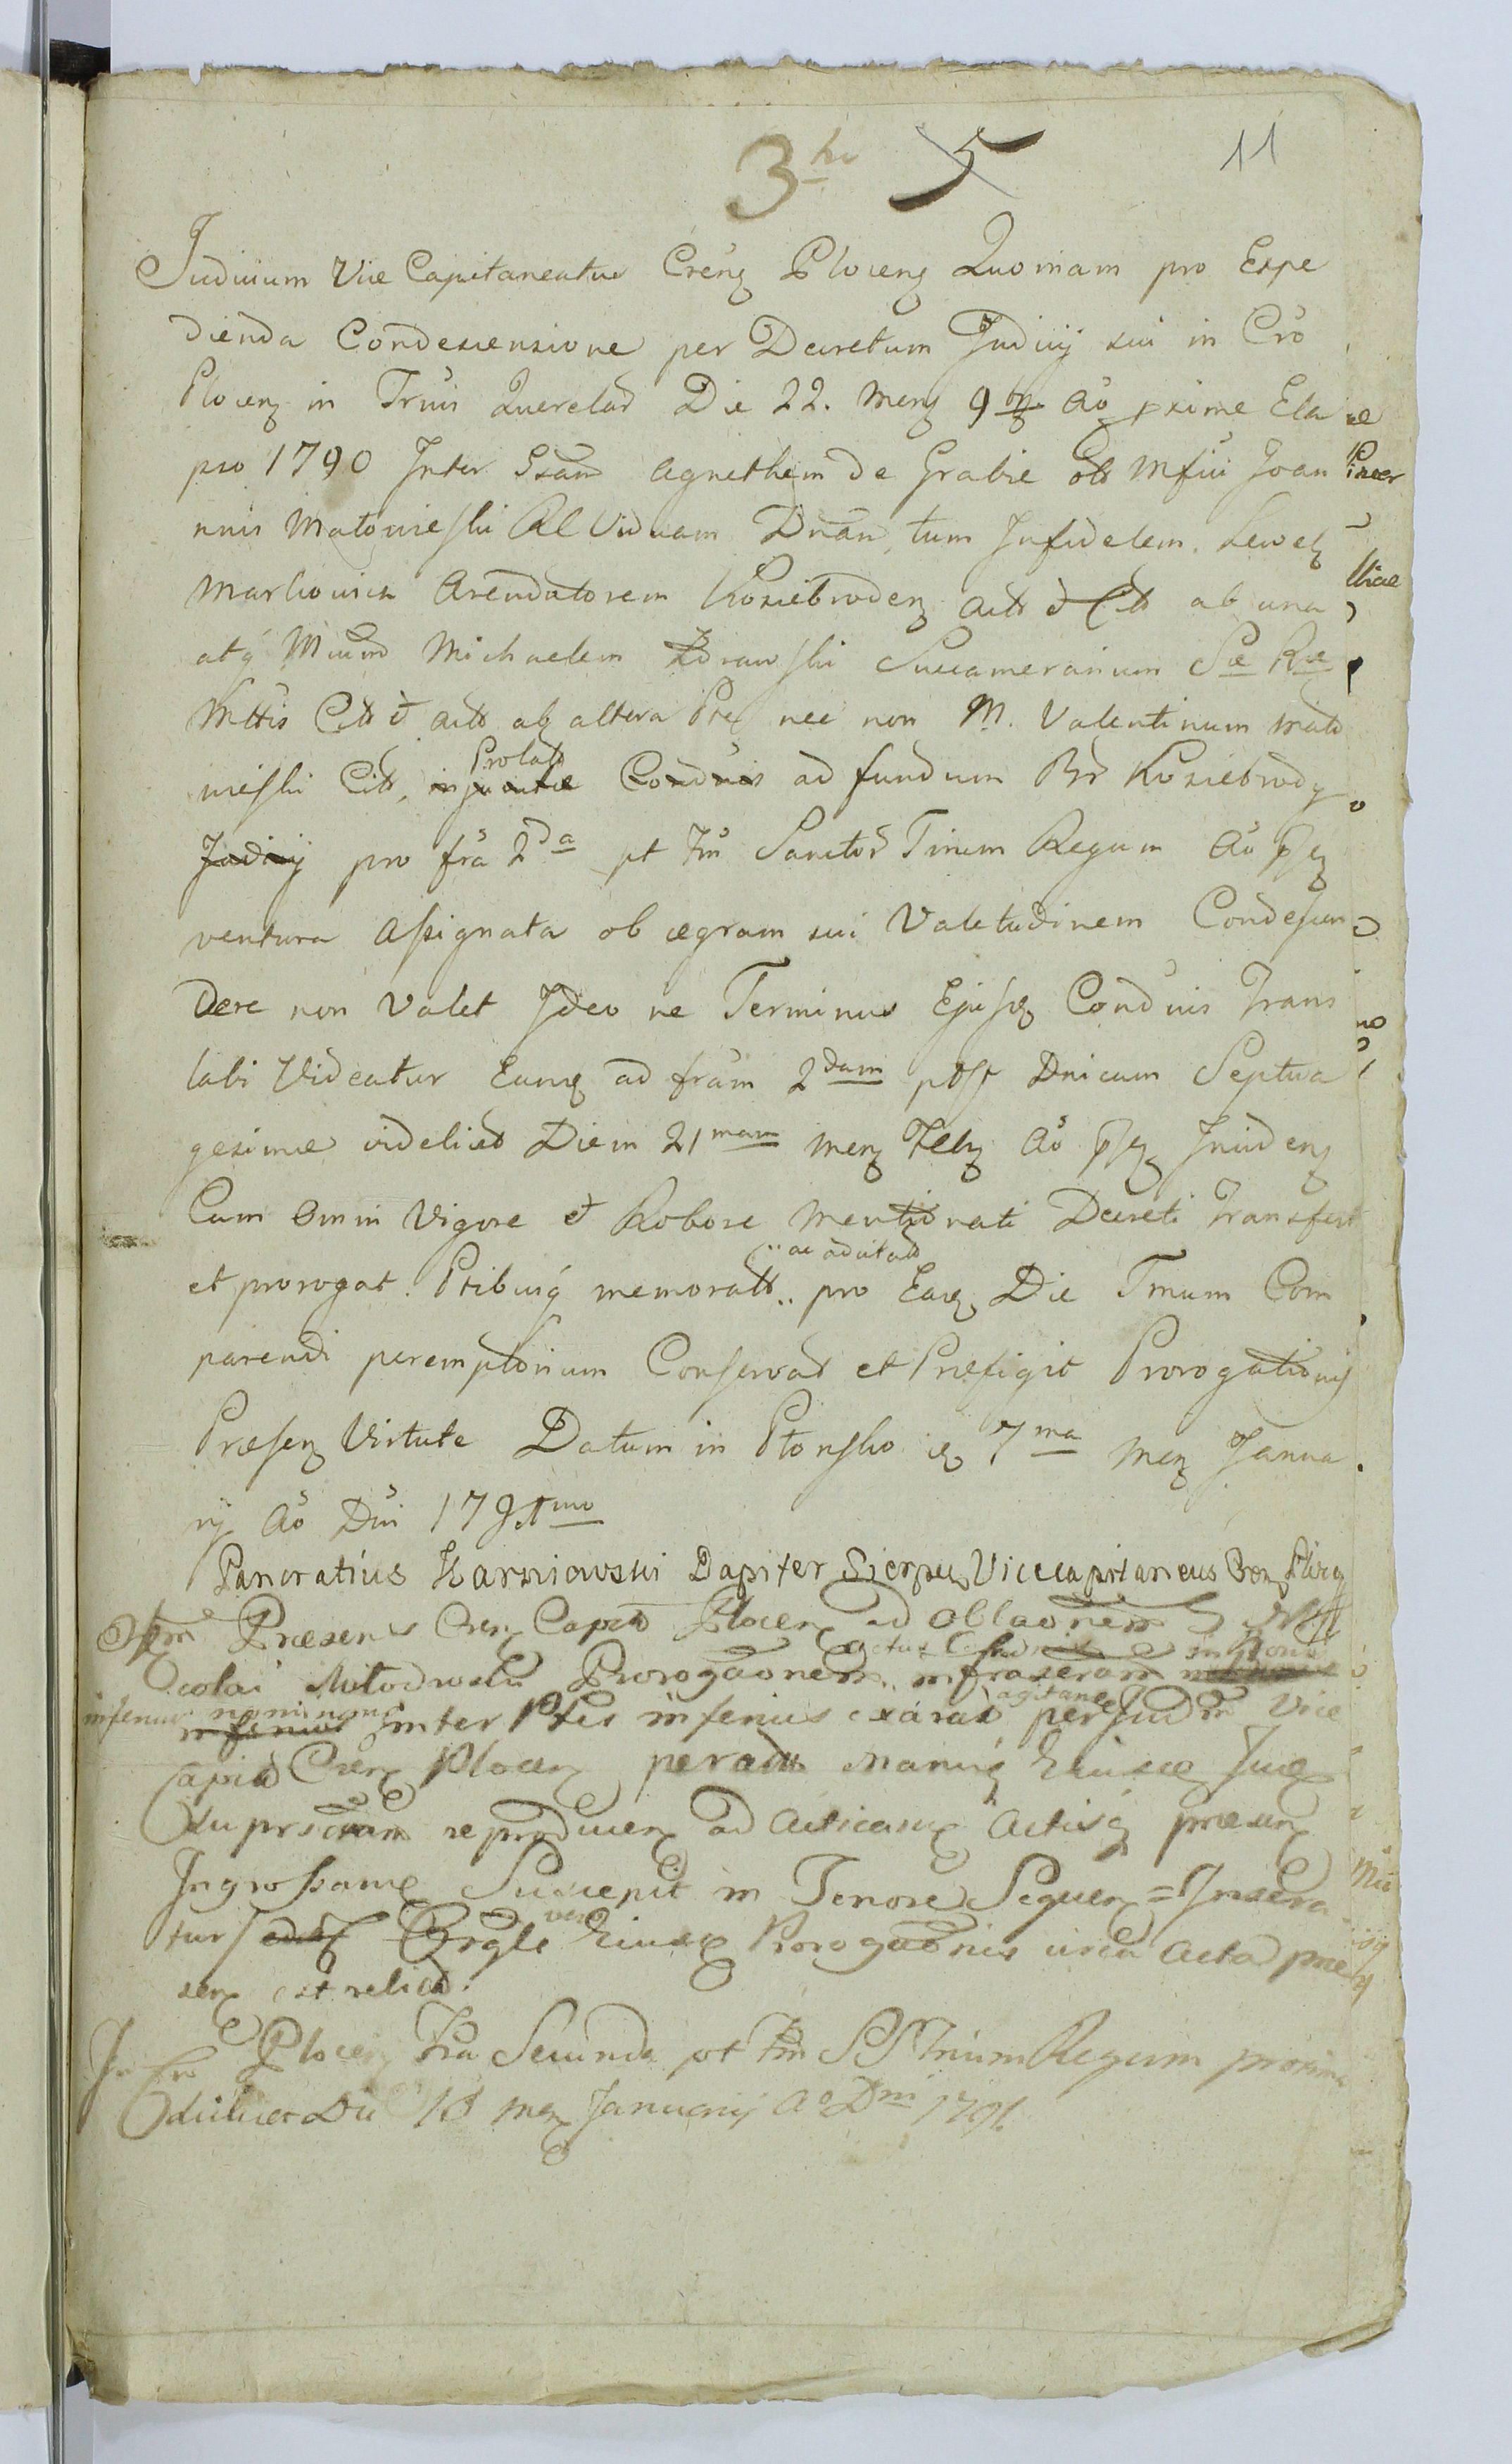 3 5 11
Judicium Vice Capitaneatus Creñ Ploceñ Quoniam pro Expe
dienda Condescensione per Decretum Judicij sui in Cro
Ploceñ in Trũis Querelar Die 22. Menš 9br Aõ pxime Ela
pso 1790 Inter Gsam Agnethem de Grabie olt Mfici Joan
nnis Matowieski Rel Viduam Dnãm, tum Infidelem Lewek
Markowicz Arendatorem Koziebrodeñ Act et Cit ab una
atq Mficum Michaelem Zdrawski Succamerarium Sæ Ræ
Mttis Cit et act ab altera Pte nec non M. Valentinum Mato
Prolat
wieski Cit, Condnis ad fundum Br Koziebrody
Judicij pro frã 2da pt Fm Sanctor Trium Regum Aõ pse
ventura Assignata ob ægram sui Valetudinem Condescen
dere non Valet Ideo ne Terminus Ejusd Condnis Trans
labi Videatur Eund ad frãm 2dam post Dnicam Septua
gesimæ videlicet Diem 21mam Menš Febr Aõ pse Incideñ
Cum Omni Vigore et Robore Mentionati Decreti Transfert
ac adcitat
et prorogat. Ptibusq memoratt.. pro Ead Die Tmum Com
parendi peremptorium Conservat et Præfigit Prorogationis
Præseñ Virtute Datum in Płońsko 7ma Menš Janua
rij Aõ Dni 1791mo
Pancratius Karniowski Dapifer Sierpeñ Vicecapitaneus Creñ Ploceñ
Præsens Creñ Capit Ploceñ ad Oblaonem
colai Młodowski Prorogãonem infrascram
inferius nominand agitan
inter Ptes inferius exarat per Judm Vice
Capit Creñ Ploceñ peract Manuq Eiusd Jud
Suprscram reproducen ad Acticand Actisq præsen
Ingrossand Suscepit in Tenore Sequen = Insera
vero
tur Orgle Eiusd Prorogãonis circa Acta præ
sen est relict.
In Cro Ploceñ Fra Secunda pt Fm SS Trium Regum proxima
scilicet Die 10 Menš Januarij Ao Dni 1791.